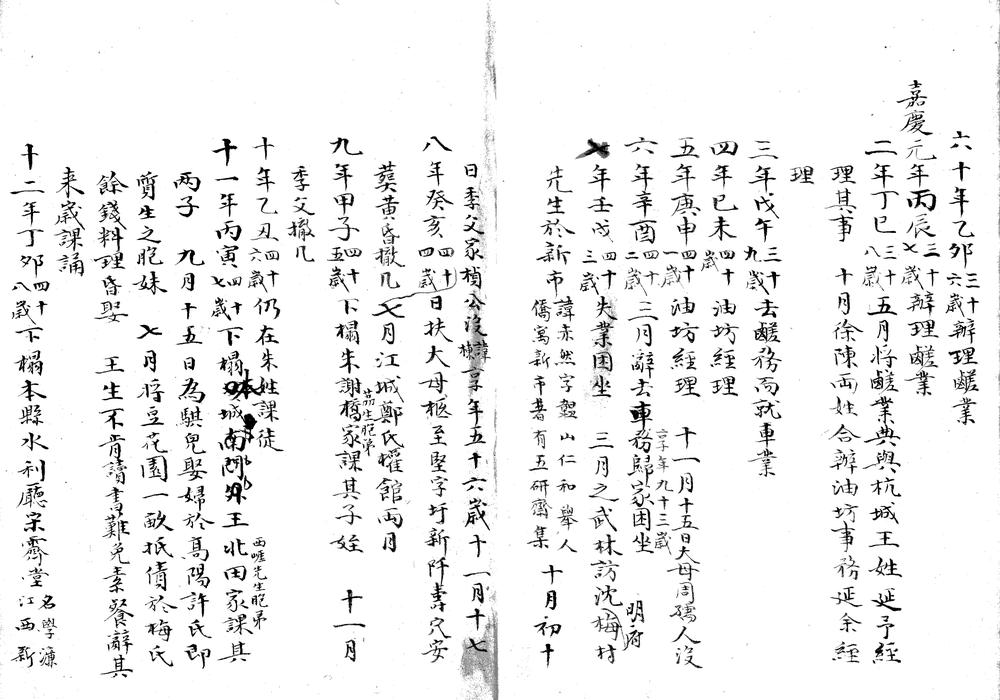 六十年乙卯三十六歲辦理鹺業
嘉慶元年丙辰三十七歲辦理鹺業
二年丁巳三十八歲五月將鹺業典與杭城王姓延予經
理其事 十月徐陳兩姓合辦油坊事務延余經
理
三年戊午三十九歲去鹺務而就車業
四年己未四十歲油坊經理
五年庚申四十一歲油坊經理 十一月十五日大母周孺人沒享年九十三歲
六年辛酉四十二歲三月辭去車務歸家困坐
七年壬戌四十三歲失業困坐 三月之武林訪沈梅村明府
先生於新市諱赤然字韞山仁和舉人僑寓新市著有五研齋集 十月初十
日季父家楨公沒諱棟享年五十六歲十一月十七
八年癸亥四十四歲日扶大母柩至堅字圩新阡壽穴安
葬黃昏撤几 七月江城鄭氏權館兩月
九年甲子四十五歲下榻朱謝橋家課其子姪 十一月
季父撤几
十年乙丑四十六歲仍在朱姓課徒
十一年丙寅四十七歲下榻城南門外王北田家西崕先生胞弟課其
兩子 九月十五日為騏兒娶婦於高陽許氏即
質生之胞妹 七月將豆花園一畝抵債於梅氏
餘錢料理昏娶 王生不肯讀書難免素餐辭其
来歲課誦
十二年丁卯四十八歲下榻本縣水利廳宗霽堂名學濂江西新